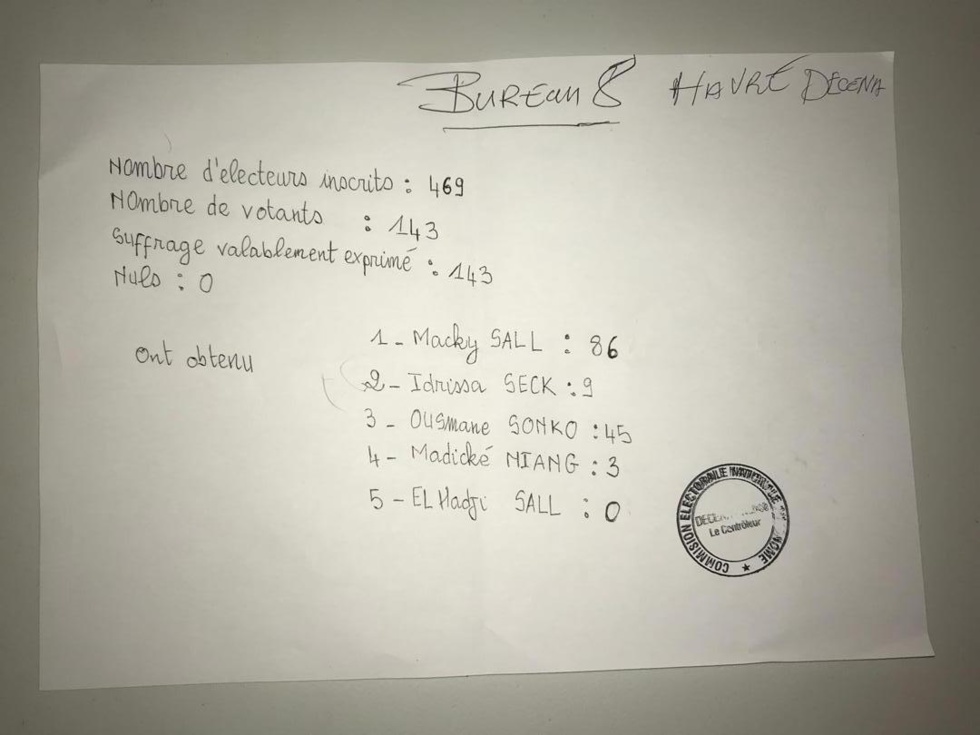 BUREAU 8 HAVRE DECENA
Nombre d'electeurs inscrits : 469
Nombre de votants : 143
Suffrage valablement exprimé : 143
Nuls : 0
Ont obtenu
1 - Macky SALL : 86
2 - Idrissa SECK : 9
3 - Ousmane SONKO : 45
4 - Madické NIANG : 3
5 - EL Hadji SALL : 0
COMMISION ELECTORALE NATIONALE
Le Contrôleur